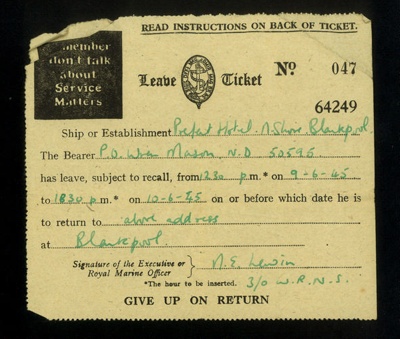 READ INSTRUCTIONS ON BACK OF TICKET.
member
don't talk
about
Service
Matters
Leave Ticket Nº 047
64249
Ship or Establishment Prefect Hotel. N. Shore, Blackpool.
The Bearer P.O. Wren Mason, N.D 50595
has leave, subject to recall, from 1230 p.m.* on 9-6-45
to 1830 p.m.* on 10-6-45 on or before which date he is
to return to above address
at Blackpool.
Signature of the Executive or
Royal Marine Officer } N. E. Lewin
*The hour to be inserted. 3/O W.R.N.S.
GIVE UP ON RETURN